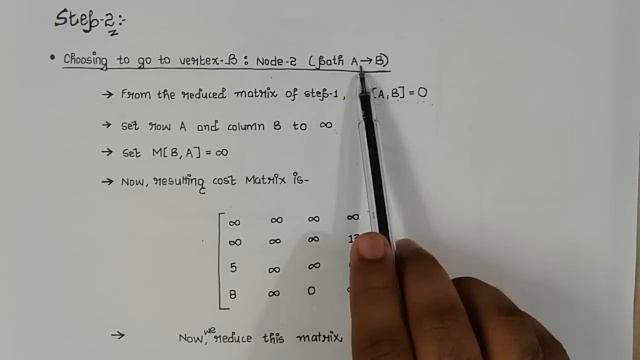 Step-2:
• Choosing to go to vertex-B : Node-2 (path A → B)
→ From the reduced matrix of step-1, [A, B] = 0
→ Set row A and column B to ∞
→ Set M[B, A] = ∞
→ Now, resulting cost Matrix is-
∞ ∞ ∞ ∞
∞ ∞ ∞
5 ∞ ∞
8 ∞ 0
→ Now, we reduce this matrix